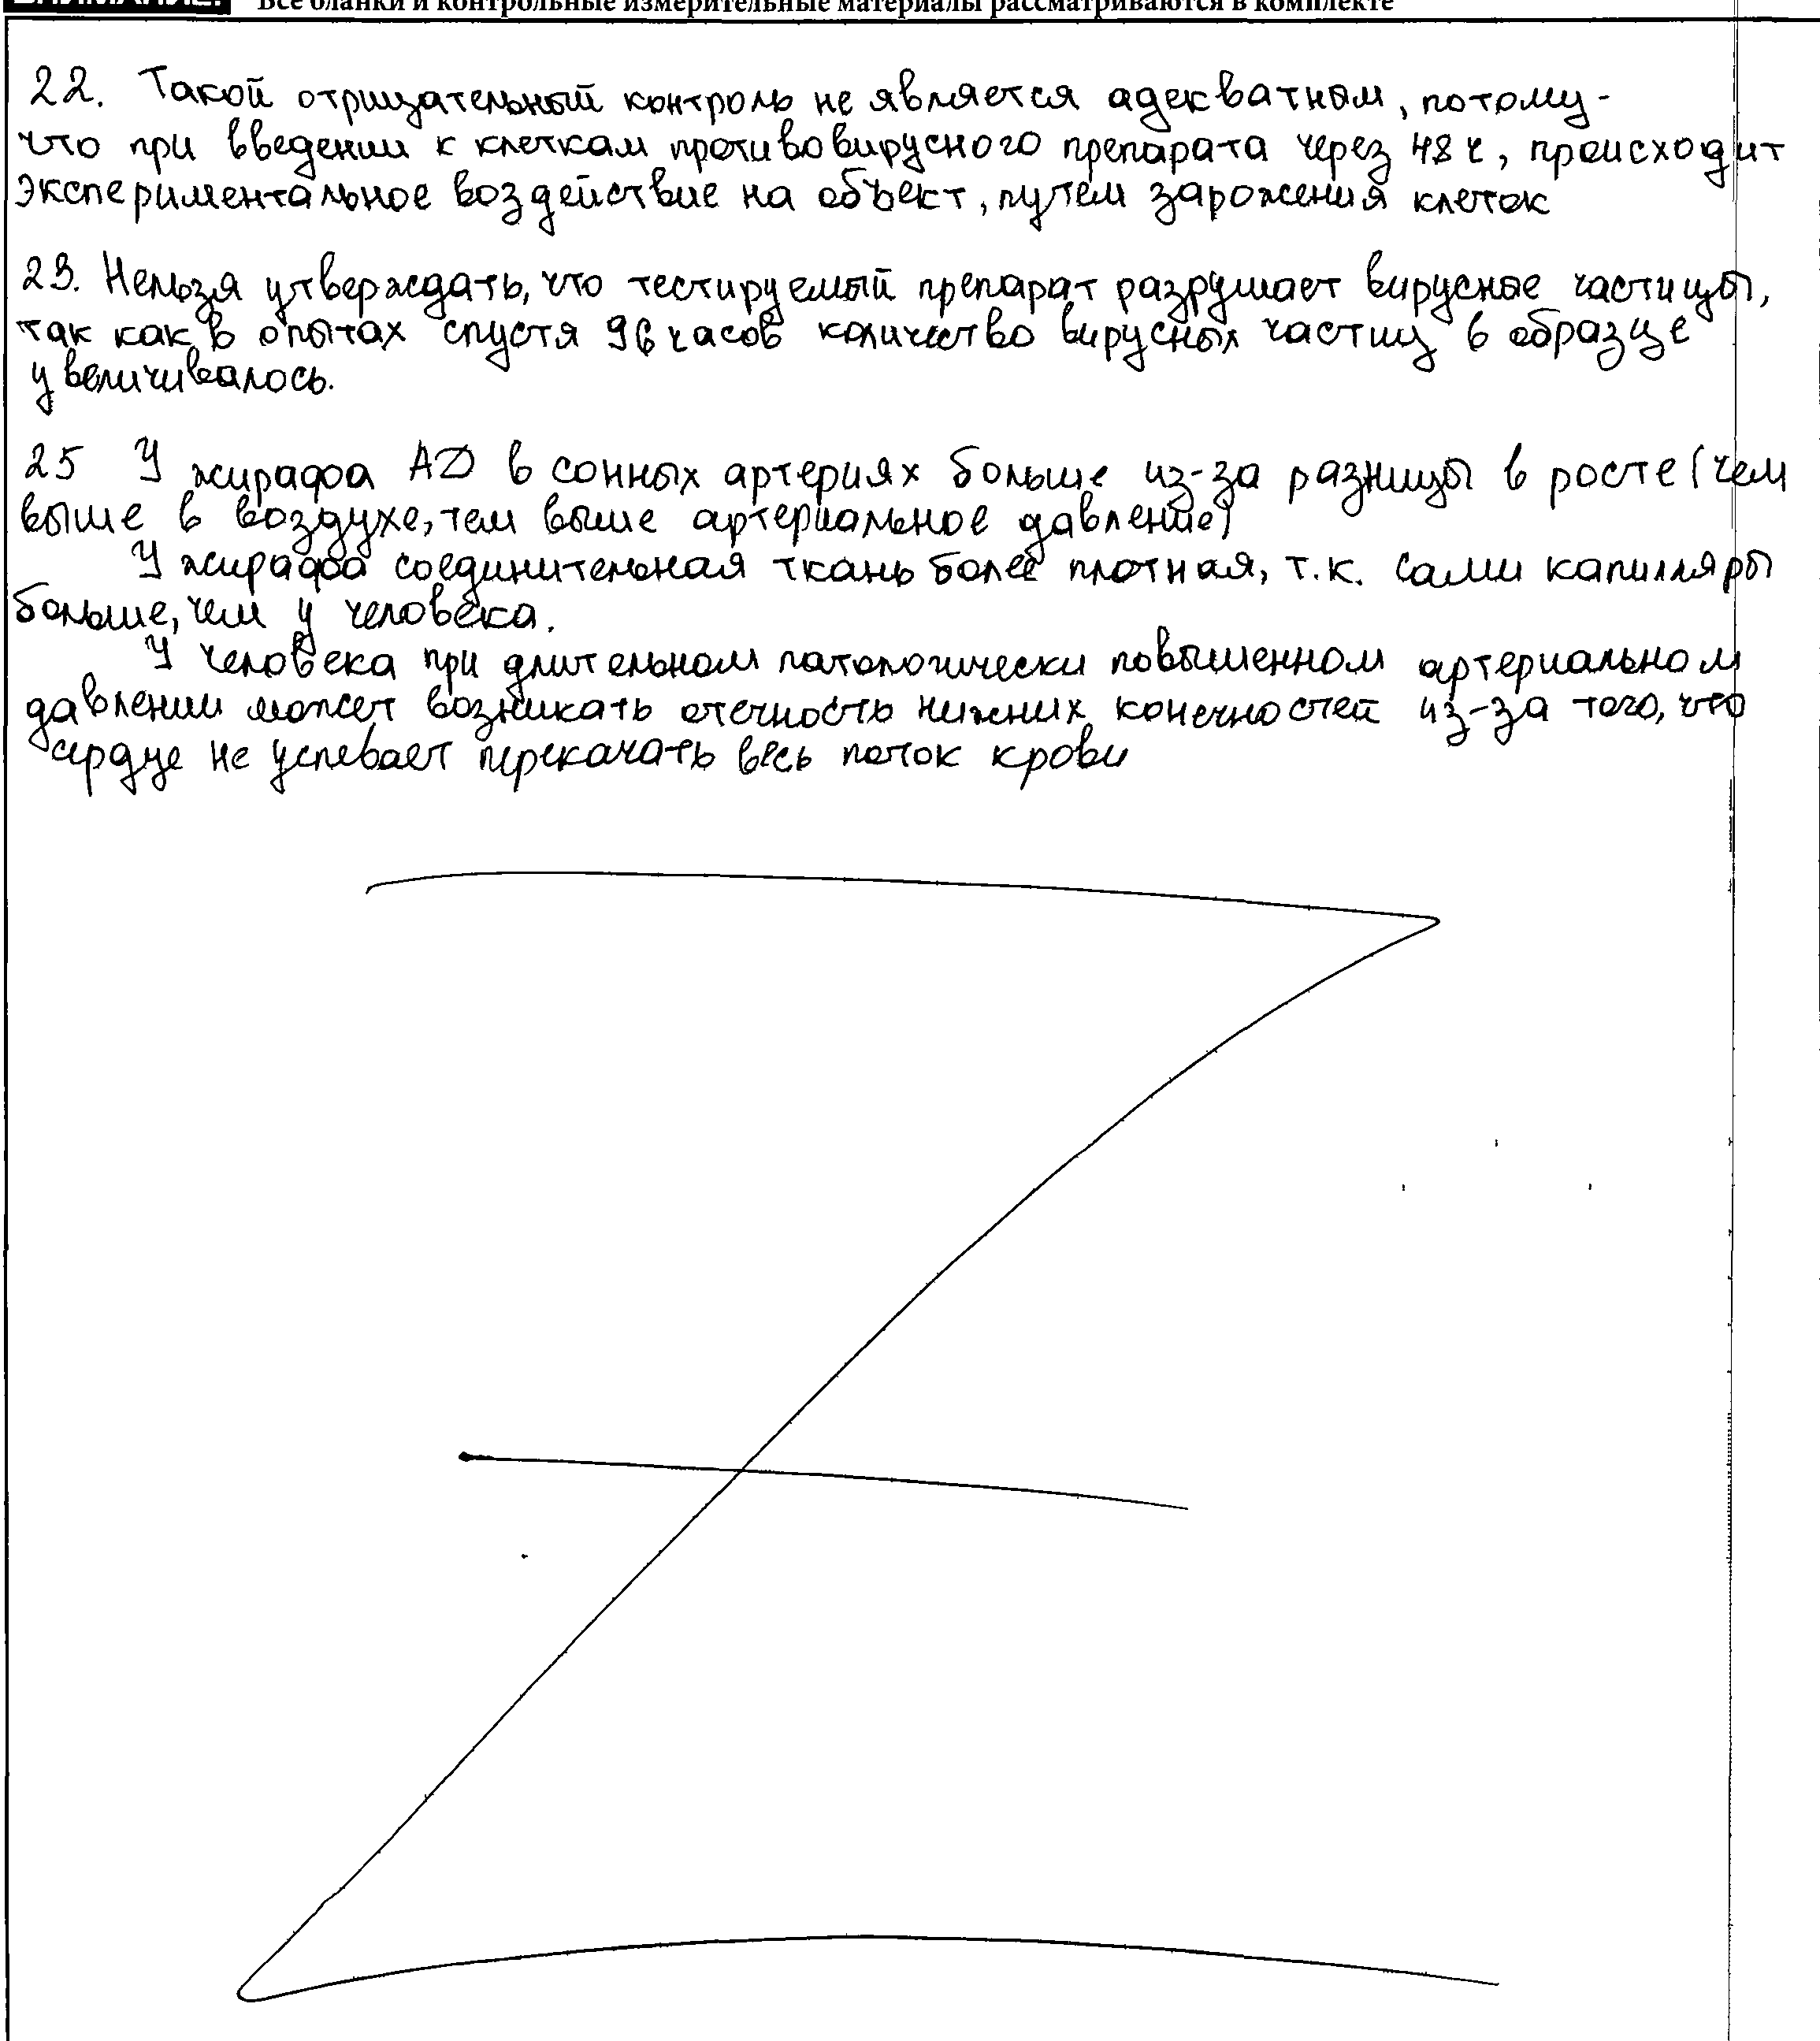 Все бланки и контрольные измерительные материалы рассматриваются в комплекте
22. Такой отрицательный контроль не является адекватным, потому-
что при введении к клеткам противовирусного препарата через 48 ч, происходит
экспериментальное воздействие на объект, путем заражения клеток
23. Нельзя утверждать, что тестируемый препарат разрушает вирусные частицы,
так как в опытах спустя 96 часов количество вирусных частиц в образце
увеличивалось.
25 У жирафа АД в сонных артериях больше из-за разницы в росте (чем
выше в воздухе, тем выше артериальное давление)
У жирафа соединительная ткань более плотная, т.к. сами капилляры
больше, чем у человека.
У человека при длительном патологически повышенном артериальном
давлении может возникать отечность нижних конечностей из-за того, что
сердце не успевает перекачать весь поток крови